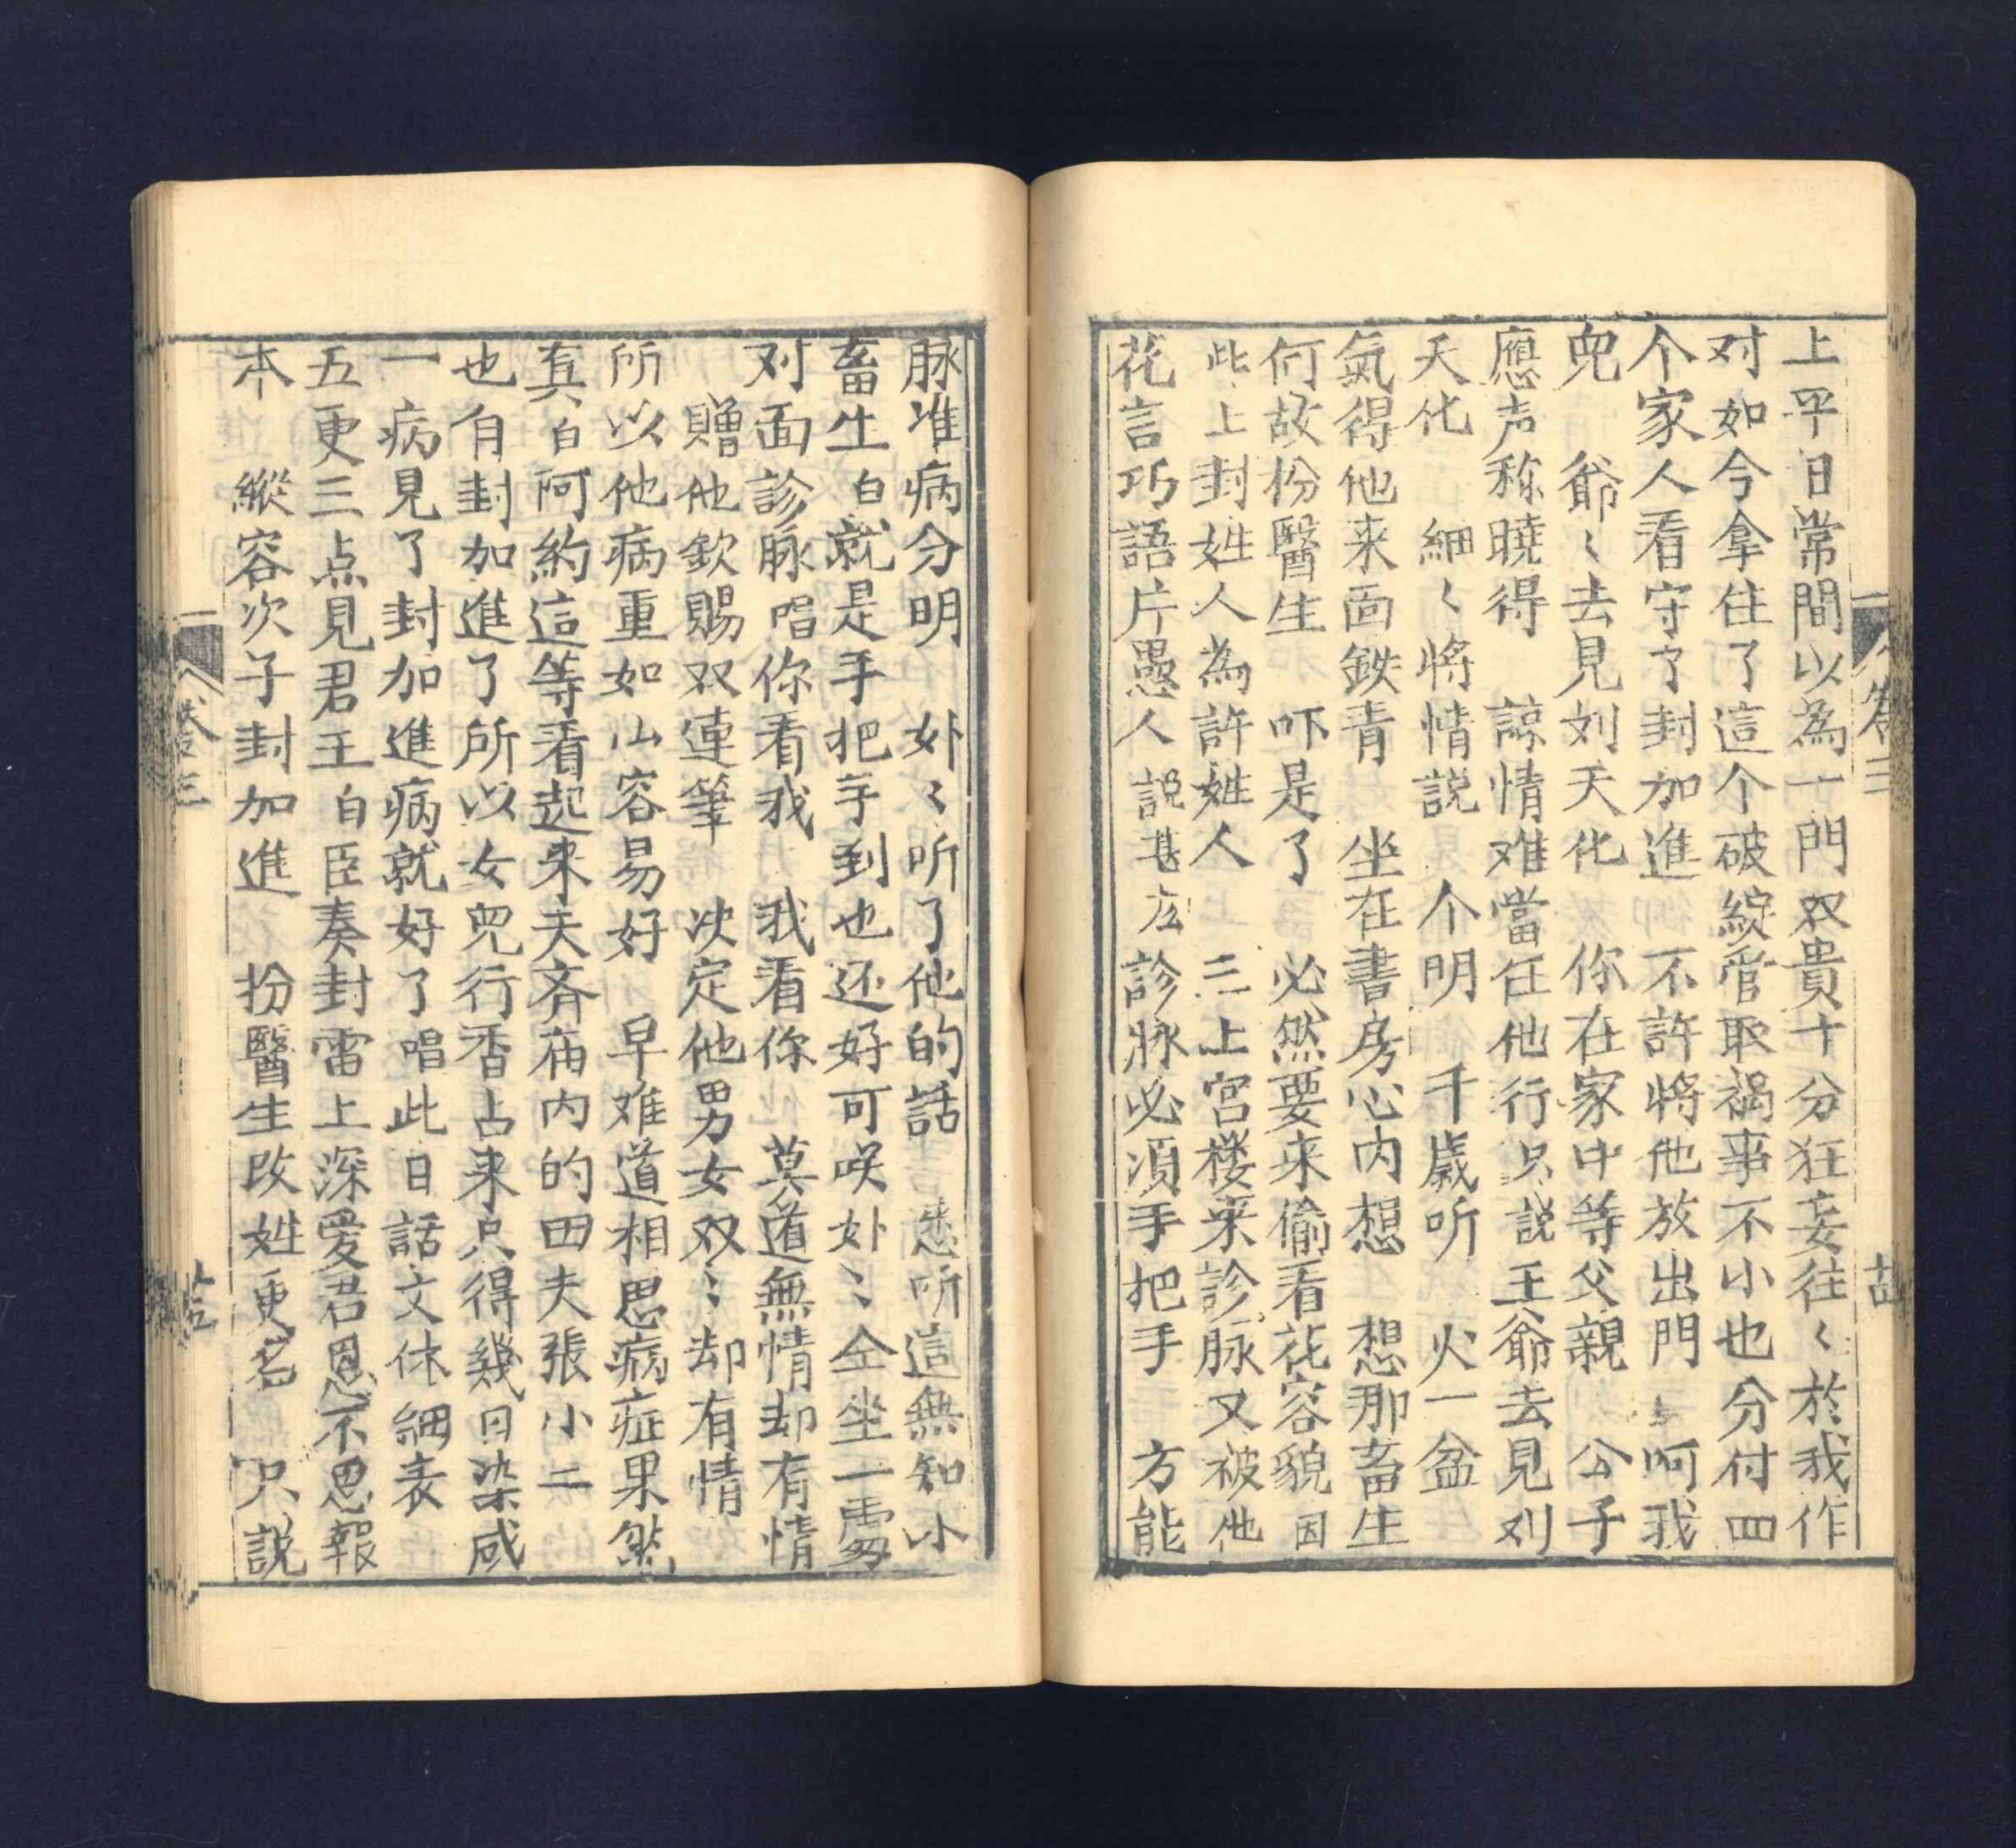 上平日常間以為一門双貴十分狂妄往〻於我作
对如今拿住了這个破綻管取禍事不小也分付四
个家人看守了封加進　不許將他放出門　呵我
兒　爺〻去見刘天化　你在家中等父親　公子
應声称曉得　諒情难當任他行只説王爺去見刘
天化　細〻將情説　个明　千歲听　火一盆
氣得他来面鉄青　坐在書房心内想　想那畜生
何故扮醫生　吓是了　必然要来偷看花容貌因
此上封姓人為許姓人　三上宮楼来診脉又被他
花言巧語片愚人説甚広診脉必須手把手　方能
脉准病分明　妕〻听了他的話　听這無知小
畜生白就是手把手到也还好可咲妕〻仝坐一處
对面診脉唱你看我　我看你　莫道無情却有情
贈他欽賜双連筆　决定他男女双〻却有情
所以他病重如山容易好　早难道相思病症果然
真白阿約這等看起来夫斉庙内的田夫張小二
也有封加進了所以女兒行香占来只得幾日染感
一病見了封加進病就好了唱此日話文休細表
五更三点見君王白臣奏封雷上深愛君恩不思報
本　縱容次子封加進　扮醫生改姓更名　只説
卷三